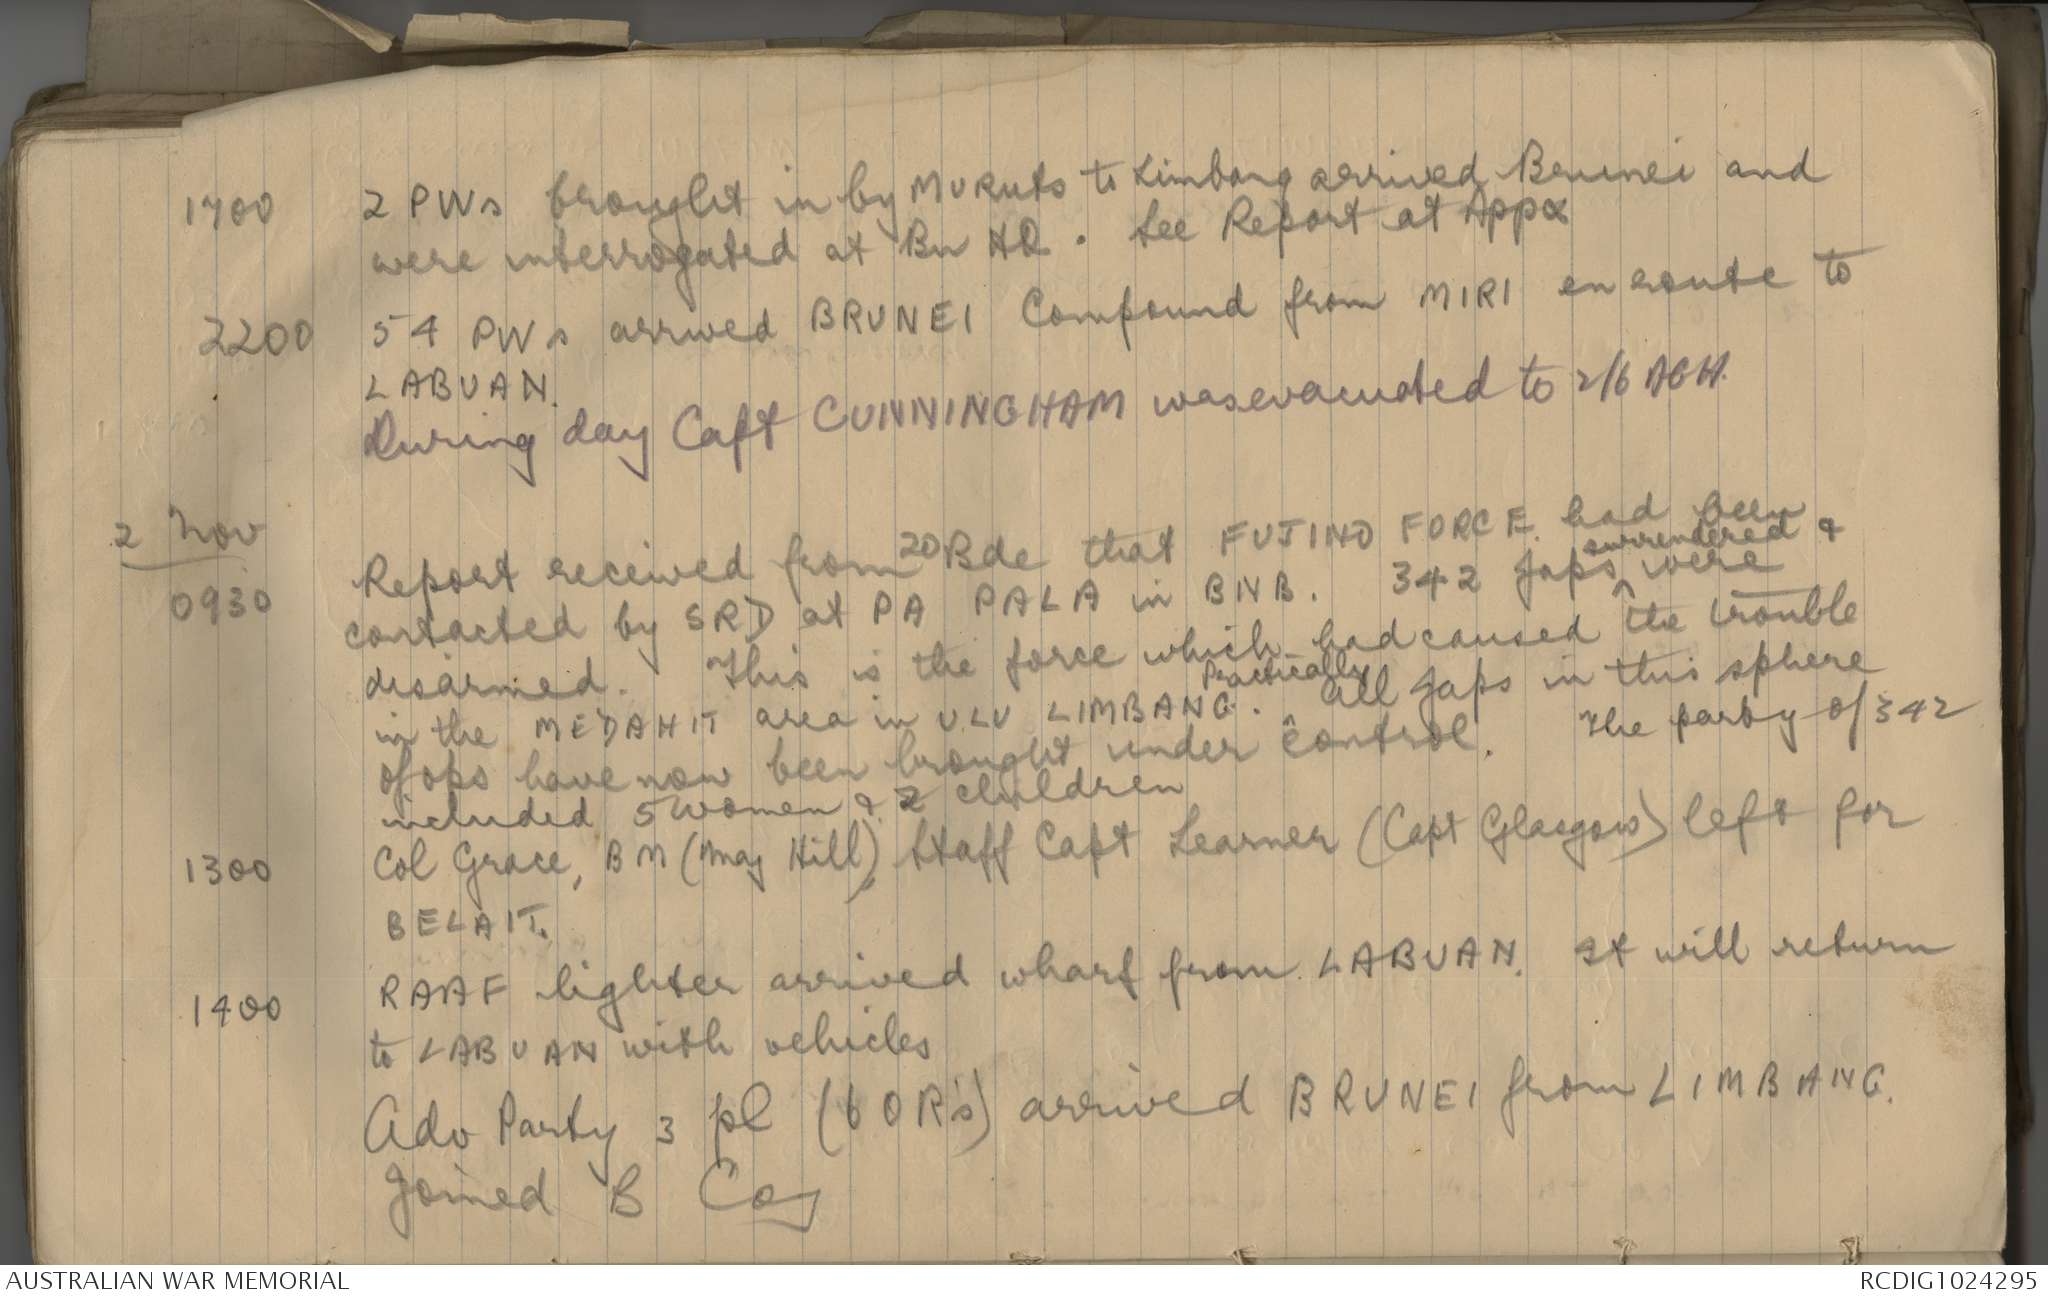 1700 2 PWs brought in by MURUTS to Limbang arrived Brunei and
were interrogated at Bn HQ. See Report at Appx
2200 54 PWs arrived BRUNEI Compound from MIRI en route to
LABUAN.
During day Capt CUNNINGHAM was evacuated to 2/6 AGH.
2 Nov
0930 Report received from 20 Bde that FUJINO FORCE had been
contacted by SRD at PA PALA in BNB. 342 Japs surrendered & were
disarmed. This is the force which had caused the trouble
in the MEDAHIT area in ULU LIMBANG. Practically all Japs in this sphere
of ops have now been brought under control. The party of 342
included 5 women & 2 children
1300 Col Grace, BM (Maj Hill), Staff Capt Learner (Capt Glasgow) left for
BELAIT.
1400 RAAF lighter arrived wharf from LABUAN. It will return
to LABUAN with vehicles
Adv Party 3 pl (6 OR's) arrived BRUNEI from LIMBANG.
Joined B Coy
AUSTRALIAN WAR MEMORIAL
RCDIG1024295